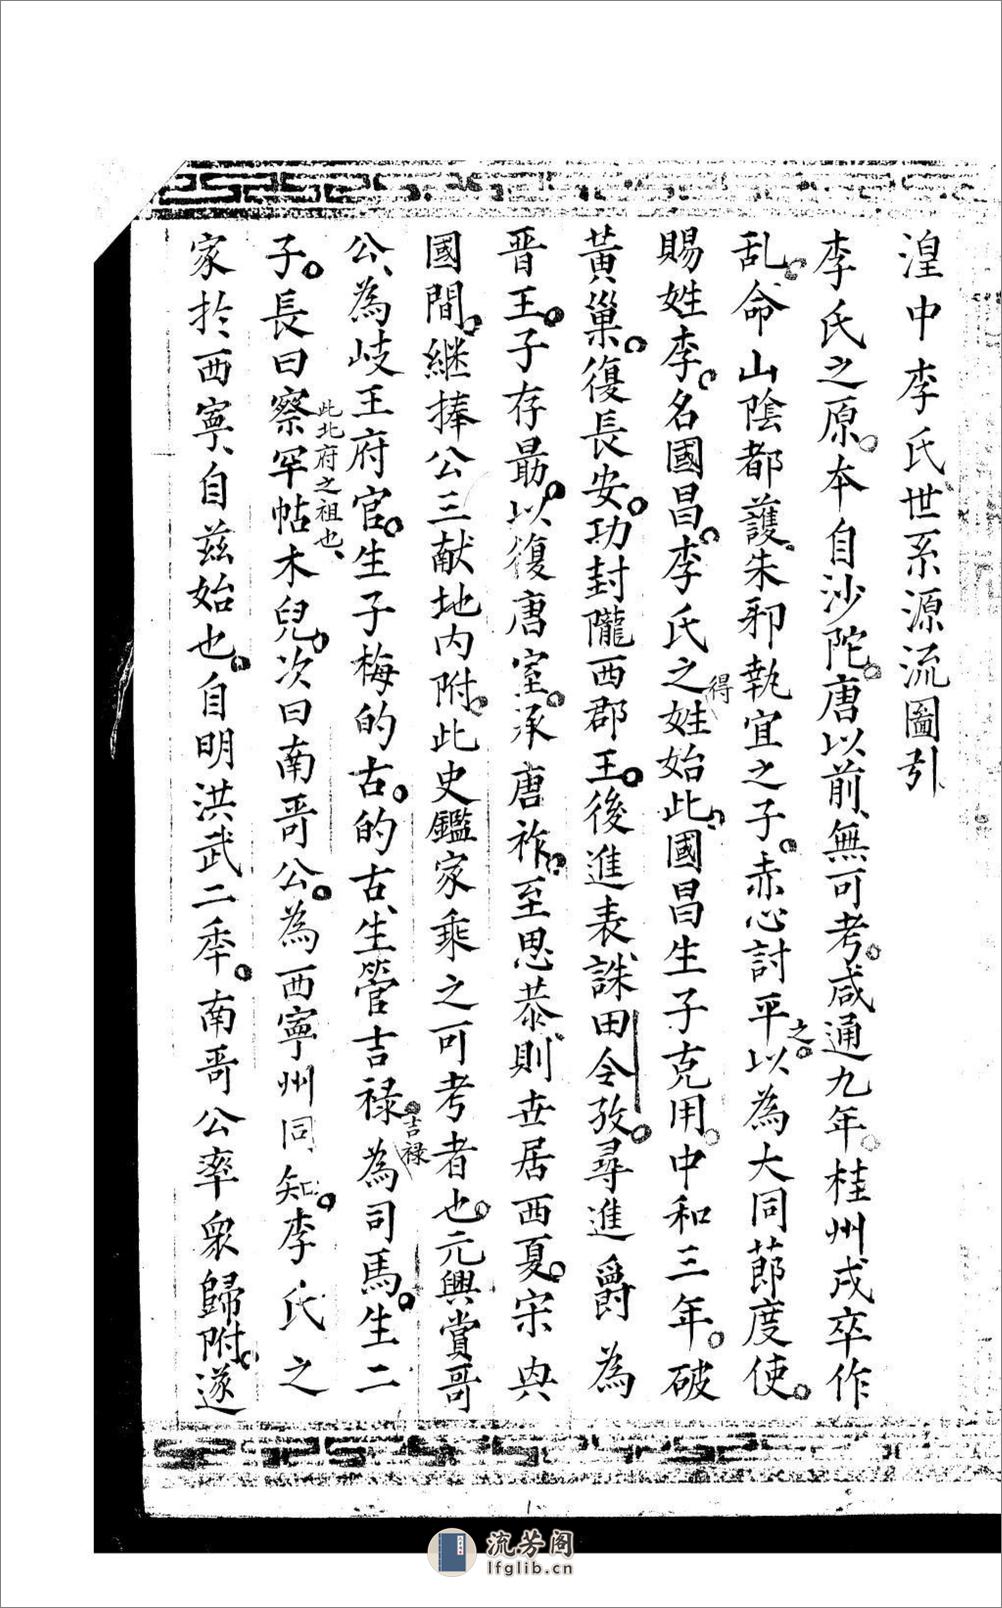 湟中李氏世系源流圖引
李氏之原。本自沙陀。唐以前、無可考。咸通九年。桂州戍卒作
乱。命山陰都護。朱邪執宜之子。赤心討平之。以為大同莭度使。
賜姓李。名國昌。李氏之得姓始此。國昌生子克用。中和三年。破
黃巢。復長安。功封隴西郡王。後進表、誅田令孜。尋進爵為
晋王。子存勗。以復唐室。承唐祚。至思恭。則世居西夏。宋與
國間。継捧公三献地內附。此史鑑家乘之可考者也。元興賞哥
公、為岐王府官。生子梅的古。的古、生管吉禄。吉禄為司馬。生二
子。長曰察罕帖木兒。此北府之祖也、次曰南哥公。為西寧州同知。李氏之
家於西寧、自兹始也。自明洪武二秊。南哥公率衆歸附。遂
流芳阁
lfglib.cn